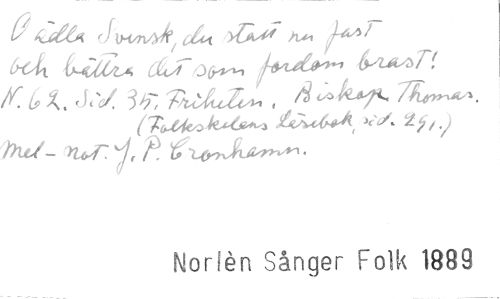 O ädla Svensk, du statt nu fast
och bättra det som fordom brast!
N. 62. Sid. 35. Friheten. Biskop Thomas.
(Folkskolans Läsebok, sid. 291.)
Mel-not. J. P. Cronhamn.
Norlèn Sånger Folk 1889